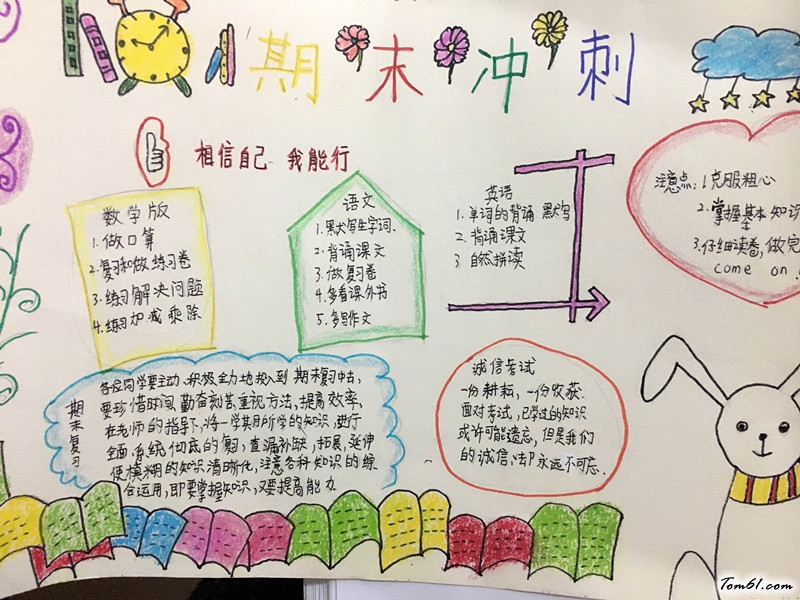 期末冲刺
相信自己 我能行
数学版
1.做口算
2.复习和做练习卷
3.练习解决问题
4.练习加减乘除
语文
1.默写生字词.
2.背诵课文
3.做复习卷
4.多看课外书
5.多写作文
英语
1.单词的背诵 默写
2.背诵课文
3 自然拼读
注意点:1克服粗心
2.掌握基本知识
3.仔细读卷,做完
come on!
期末复习
各位同学要主动、积极、全力地投入到期末复习中去,
要珍惜时间、勤奋刻苦重视方法,提高效率,
在老师的指导下,将一学期所学的知识,进行
全面系统彻底的复习,查漏补缺,拓展,延伸
使模糊的知识清晰化,注意各科知识的综
合运用,即要掌握知识,又要提高能力.
诚信考试
一份耕耘,一份收获.
面对考试,已学过的知识
或许可能遗忘,但是我们
的诚信,却永远不可忘.
Tom61.com